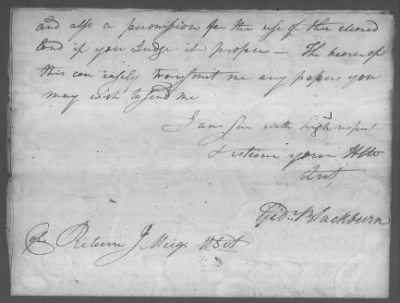 and also a permission for the use of the cleared
land if you Judge it proper — The bearer of
this can safely transmit me any papers you
may wish to send me
I am Sir with high respect
& esteem your Hble
Svt,
Gidn Blackburn
Return J Meigs